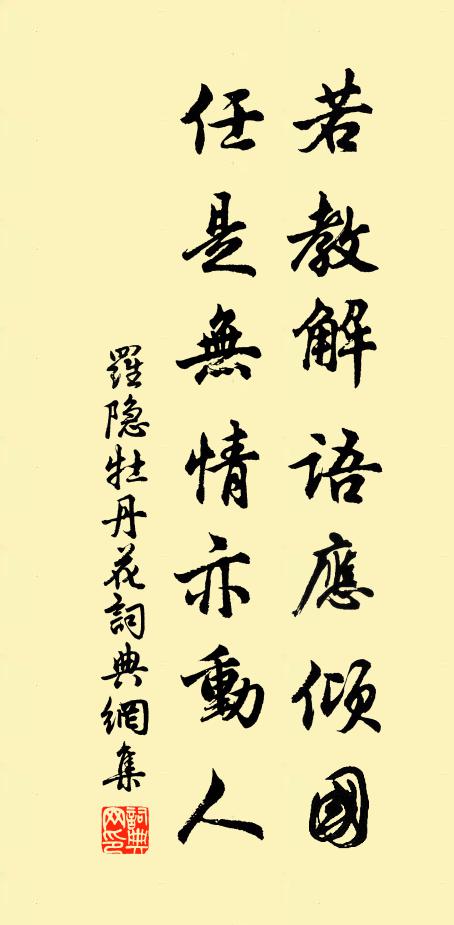 若教解語應傾國
任是無情亦動人
羅隐牡丹花詞典網集
詞典
网印